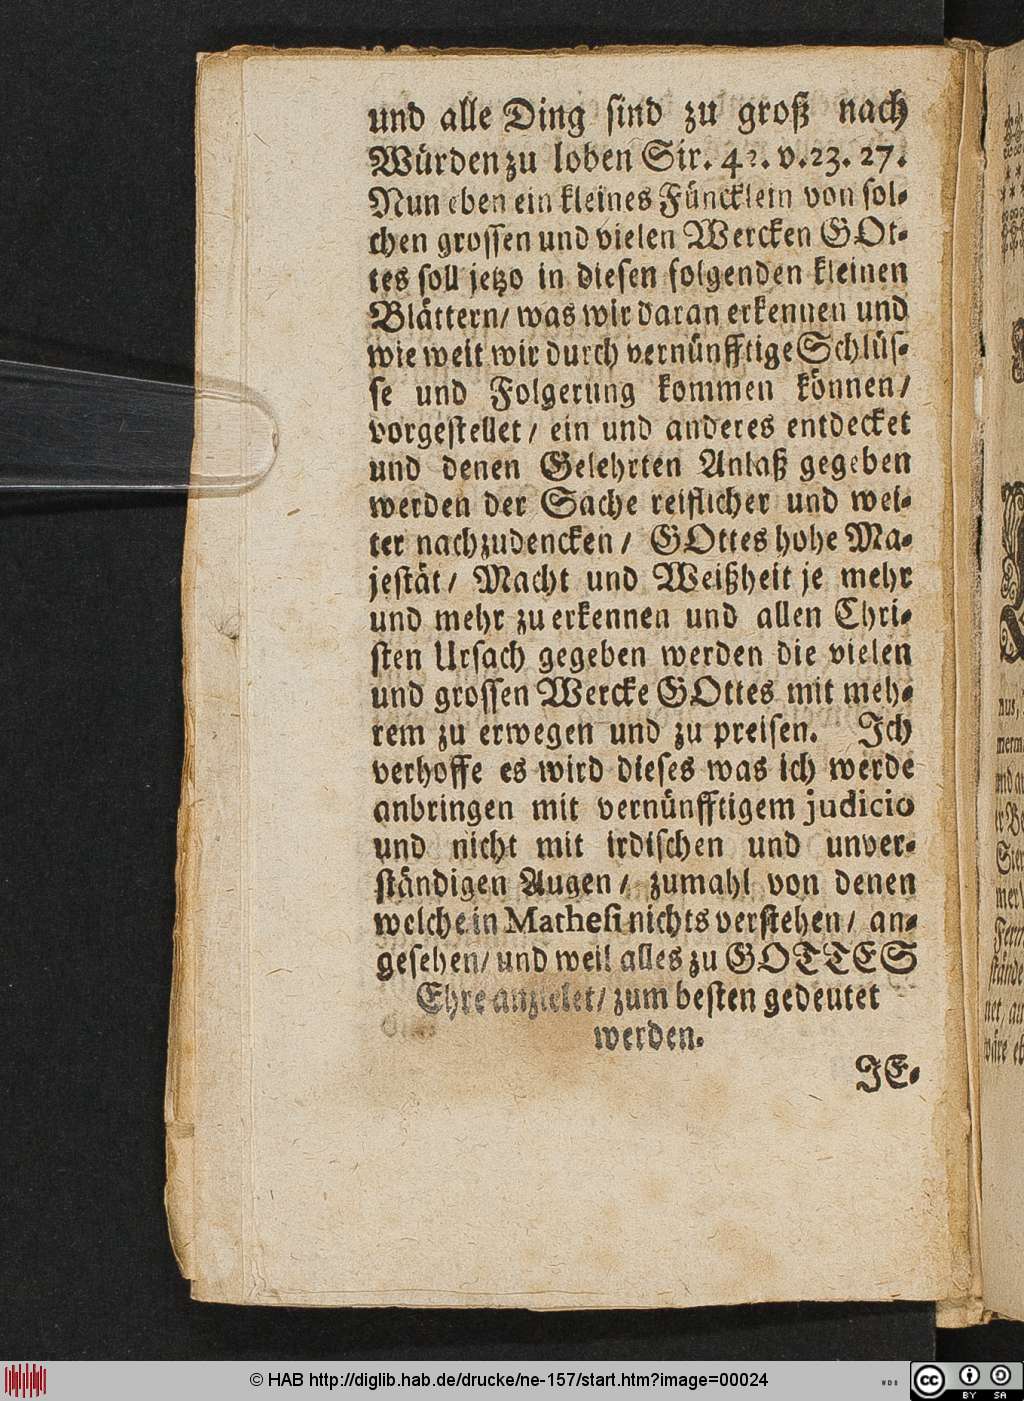 und alle Ding sind zu groß nach
Würden zu loben Sir. 42. v. 23. 27.
Nun eben ein kleines Füncklein von sol-
chen grossen und vielen Wercken GOt-
tes soll jetzo in diesen folgenden kleinen
Blättern/ was wir daran erkennen und
wie weit wir durch vernünfftige Schlüs-
se und Folgerung kommen können/
vorgestellet/ ein und anderes entdecket
und denen Gelehrten Anlaß gegeben
werden der Sache reifflicher und wei-
ter nachzudencken/ GOttes hohe Ma-
jestät/ Macht und Weißheit je mehr
und mehr zu erkennen und allen Chri-
sten Ursach gegeben werden die vielen
und grossen Wercke GOttes mit meh-
rem zu erwegen und zu preisen. Ich
verhoffe es wird dieses was ich werde
anbringen mit vernünfftigem judicio
und nicht mit irdischen und unver-
ständigen Augen/ zumahl von denen
welche in Mathesi nichts verstehen/ an-
gesehen/ und weil alles zu GOTTES
Ehre anzielet/ zum besten gedeutet
werden.
JE-
© HAB http://diglib.hab.de/drucke/ne-157/start.htm?image=00024
cc BY SA